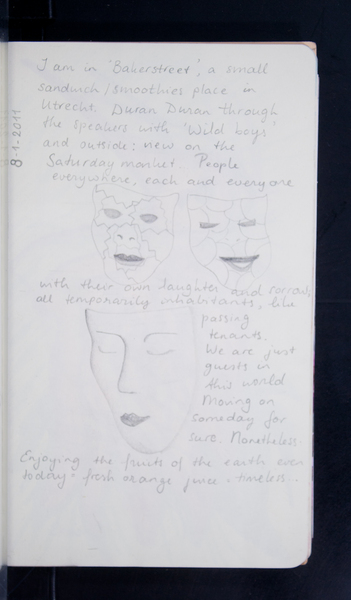 8-1-2011
I am in 'Bakerstreet', a small
sandwich/smoothies place in
Utrecht. Duran Duran through
the speakers with 'Wild boys'
and outside: view on the
Saturday market. People
everywhere, each and everyone
with their own laughter and sorrow,
all temporarily inhabitants, like
passing
tenants.
We are just
guests in
this world
Moving on
someday for
sure. Nonetheless
Enjoying the fruits of the earth even
today - fresh orange juice - timeless...